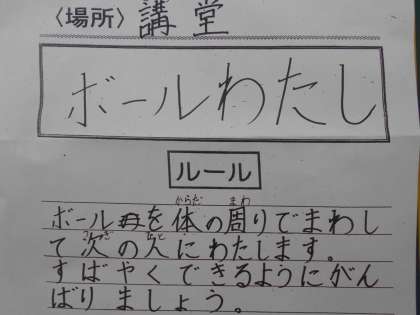 〈場所〉講堂
ボールわたし
ルール
ボールを体の周りでまわし
て次の人にわたします。
すばやくできるようにがん
ばりましょう。